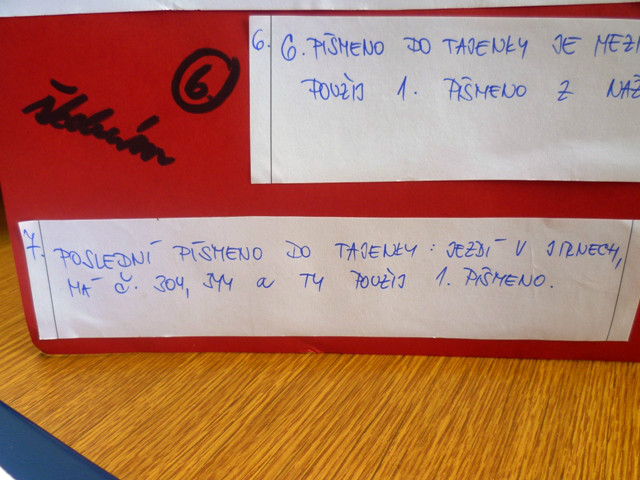 6. 6. PÍŠMENO DO TAJENKY JE MEZI
POUŽIJ 1. PÍŠMENO Z NÁZ
6.
7. POSLEDNÍ PÍŠMENO DO TAJENKY: JEZDÍ V JIRNECH,
MÁ Č. 304, 344 a TY POUŽIJ 1. PÍŠMENO.